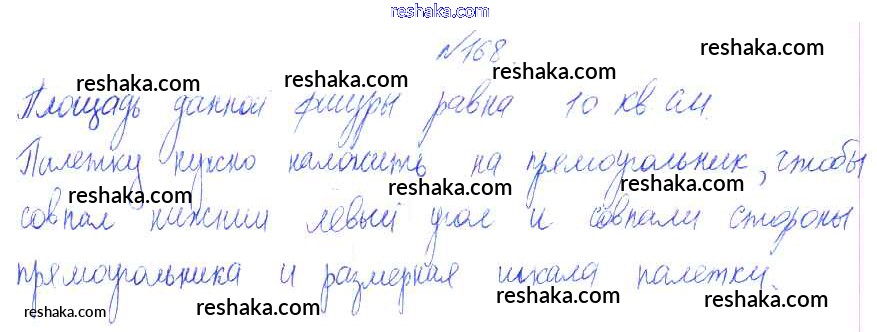 reshaka.com
№168
reshaka.com reshaka.com reshaka.com reshaka.com
Площадь данной фигуры равна 10 кв см.
reshaka.com reshaka.com reshaka.com
Палетку нужно наложить на прямоугольник, чтобы
reshaka.com reshaka.com reshaka.com
совпал нижний левый угол и совпали стороны
прямоугольника и размерная шкала палетки.
reshaka.com reshaka.com reshaka.com